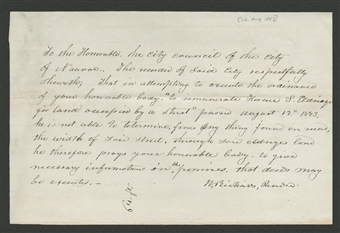 To the Honorable, the city council of the city
of Nauvoo. The recorder of said City respectfully
sheweth; That in attempting to execute the ordinance
of your honorable body, "to remunerate Horace S. Eldridge
for land occupied by a street" passed August 12th 1843,
he is not able to determine, from any thing found on record,
the width of said street, through said Eldriges land
he therefore prays your honorable body, to give
necessary information in the premises, that deeds may
be executed. —
W. Richards, Recorder